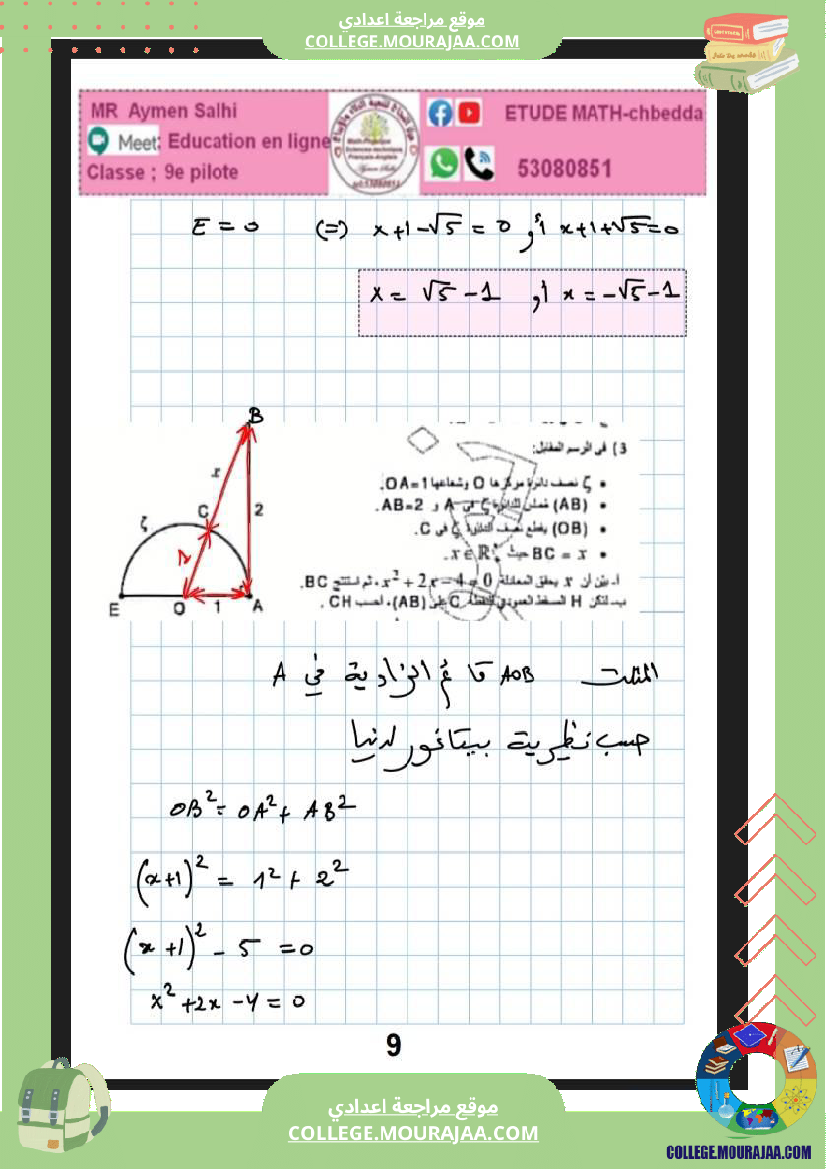 موقع مراجعة اعدادي
COLLEGE.MOURAJAA.COM
MR Aymen Salhi
Meet: Education en ligne
Classe ; 9e pilote
ETUDE MATH-chbedda
53080851
E = 0 (=) x+1-√5 = 0 أو x+1+√5=0
x = √5 - 1 أو x = -√5 - 1
3) في الرسم المقابل:
ζ نصف دائرة مركزها O وشعاعها OA=1.
(AB) مماس للدائرة ζ في A و AB=2.
(OB) يقطع نصف الدائرة ζ في C.
BC = x حيث x∈ℝ
أ- بين أن x يحقق المعادلة x² + 2x - 4 = 0، ثم استنتج BC.
ب- لتكن H المسقط العمودي للنقطة C على (AB)، احسب CH.
B
x
C
2
ζ
1
E O 1 A
المثلث AOB قائم الزاوية في A
حسب نظرية بيتاغور لدنيا
OB² = OA² + AB²
(x+1)² = 1² + 2²
(x+1)² - 5 = 0
x² + 2x - 4 = 0
9
موقع مراجعة اعدادي
COLLEGE.MOURAJAA.COM
COLLEGE.MOURAJAA.COM